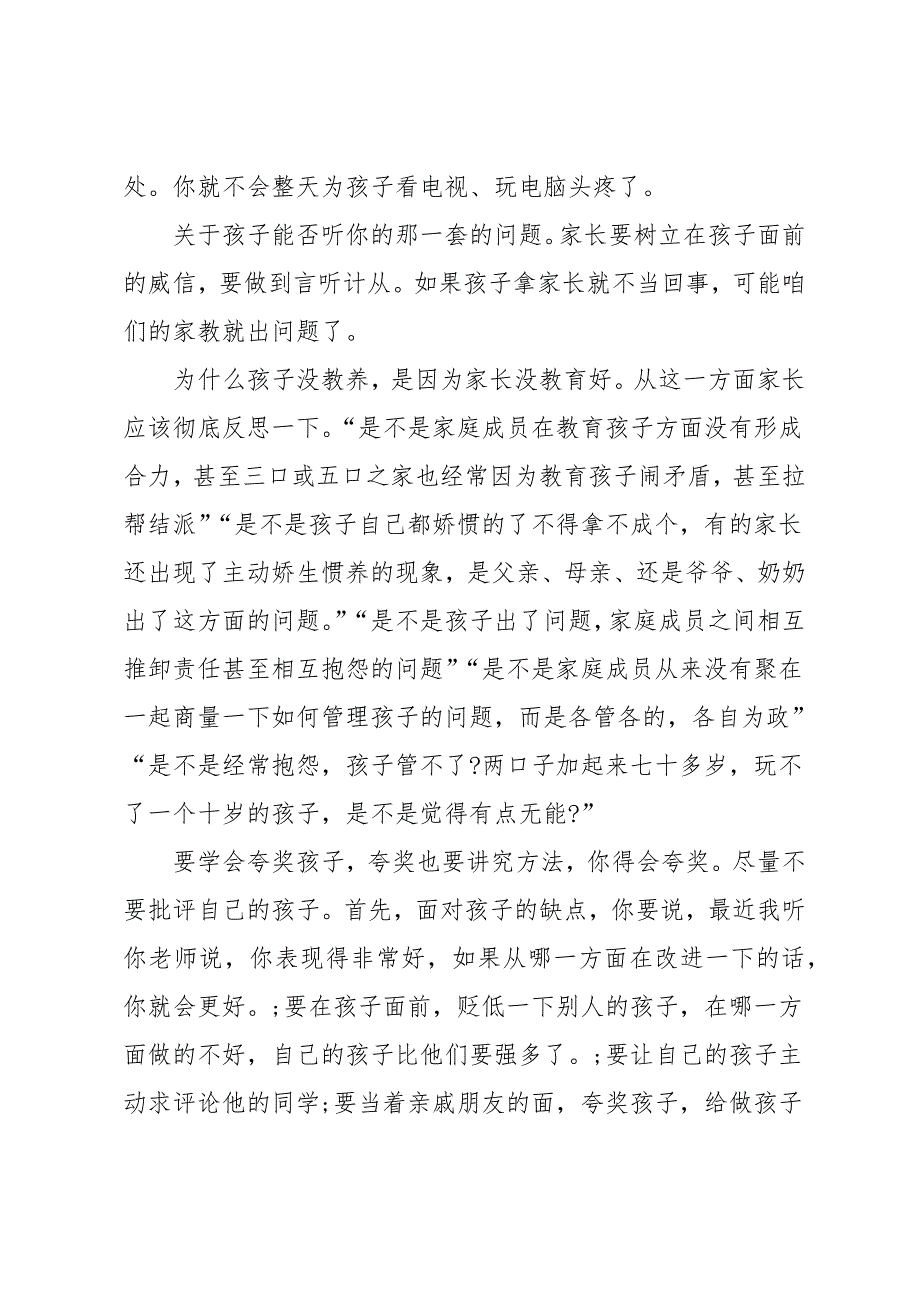 处。你就不会整天为孩子看电视、玩电脑头疼了。
关于孩子能否听你的那一套的问题。家长要树立在孩子面前
的威信，要做到言听计从。如果孩子拿家长就不当回事，可能咱
们的家教就出问题了。
为什么孩子没教养，是因为家长没教育好。从这一方面家长
应该彻底反思一下。“是不是家庭成员在教育孩子方面没有形成
合力，甚至三口或五口之家也经常因为教育孩子闹矛盾，甚至拉
帮结派”“是不是孩子自己都娇惯的了不得拿不成个，有的家长
还出现了主动娇生惯养的现象，是父亲、母亲、还是爷爷、奶奶
出了这方面的问题。”“是不是孩子出了问题，家庭成员之间相互
推卸责任甚至相互抱怨的问题”“是不是家庭成员从来没有聚在
一起商量一下如何管理孩子的问题，而是各管各的，各自为政”
“是不是经常抱怨，孩子管不了?两口子加起来七十多岁，玩不
了一个十岁的孩子，是不是觉得有点无能?”
要学会夸奖孩子，夸奖也要讲究方法，你得会夸奖。尽量不
要批评自己的孩子。首先，面对孩子的缺点，你要说，最近我听
你老师说，你表现得非常好，如果从哪一方面在改进一下的话，
你就会更好。;要在孩子面前，贬低一下别人的孩子，在哪一方
面做的不好，自己的孩子比他们要强多了。;要让自己的孩子主
动求评论他的同学;要当着亲戚朋友的面，夸奖孩子，给做孩子